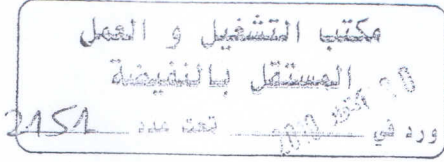 مكتب التشغيل و العمل
المستقل بالنفيضة
ورد في ........ تحت عدد 2151